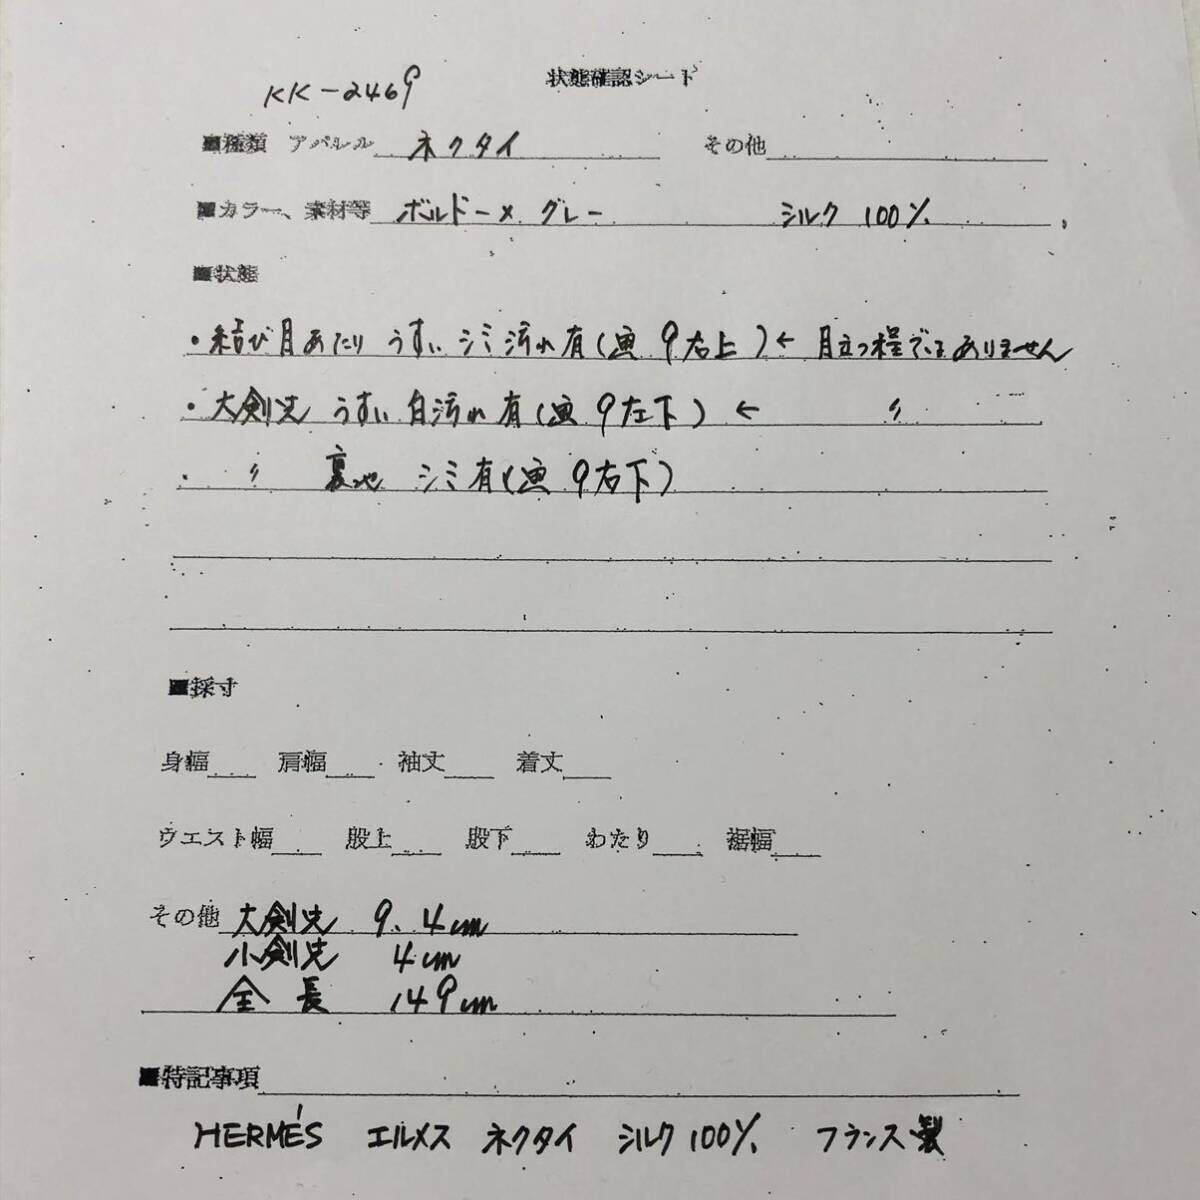 状態確認シート
KK-2469
■種類 アパレル ネクタイ その他
■カラー、素材等 ボルドー×グレー シルク 100%
■状態
・結び目あたり うすいシミ汚れ有(画9右上)← 目立つ程ではありません
・大剣先 うすい白汚れ有(画9左下)← 〃
・ 〃 裏地 シミ有(画9右下)
■採寸
身幅 肩幅 袖丈 着丈
ウエスト幅 股上 股下 わたり 裾幅
その他 大剣先 9.4cm
小剣先 4cm
全長 149cm
■特記事項
HERMÉS エルメス ネクタイ シルク100% フランス製